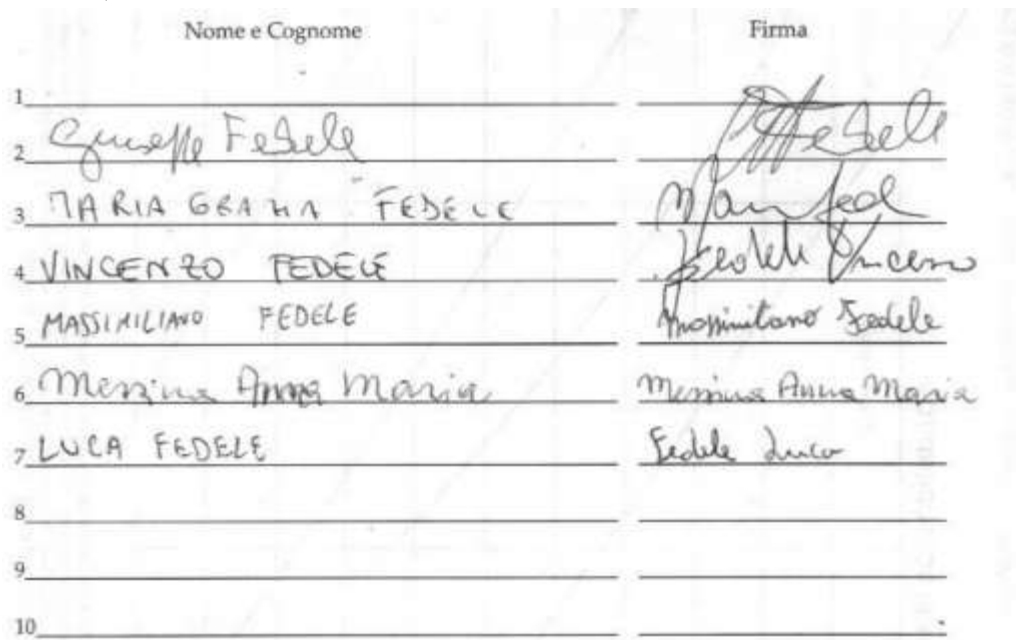 Nome e Cognome Firma
1
2 Giuseppe Fedele Fedele
3 MARIA GRAZIA FEDELE
4 VINCENZO FEDELE Fedele Vincenzo
5 MASSIMILIANO FEDELE Massimiliano Fedele
6 Messina Anna Maria Messina Anna Maria
7 LUCA FEDELE Fedele Luca
8
9
10